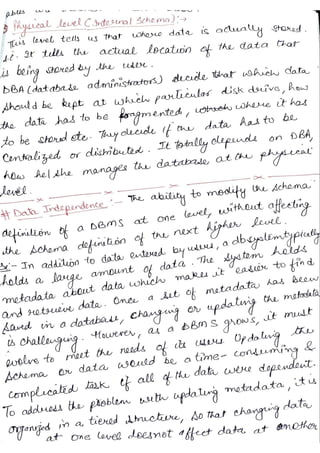 3) Physical level (Internal Schema) :-
This level tells us that where data is actually stored.
i.e. It tells the actual location of the data that
is being stored by the user.
DBA (database administrators) decide that which data
should be kept at which particular disk drive, how
the data has to be fragmented, where it has
to be stored etc. They decide if the data has to be
Centralized or distributed. It totally depends on DBA,
how he/she manages the database at the physical
level.
# Data Independence :- The ability to modify the schema
definition of a DBMS at one level, without affecting
the schema definition of the next higher level.
In addition to data entered by users, a db system typically
holds a large amount of data. The system holds
metadata about data which makes it easier to find
and retrieve data. Once a set of metadata has been
saved in a database, changing or updating the metadata
is challenging. However, as a DBMS grows, it must
evolve to meet the needs of its users Updating the
Schema or data would be a time-consuming &
complicated task if all of the data were dependent.
To address the problem with updating metadata, it is
organized in a tiered structure, so that changing data
at one level does not affect data at another